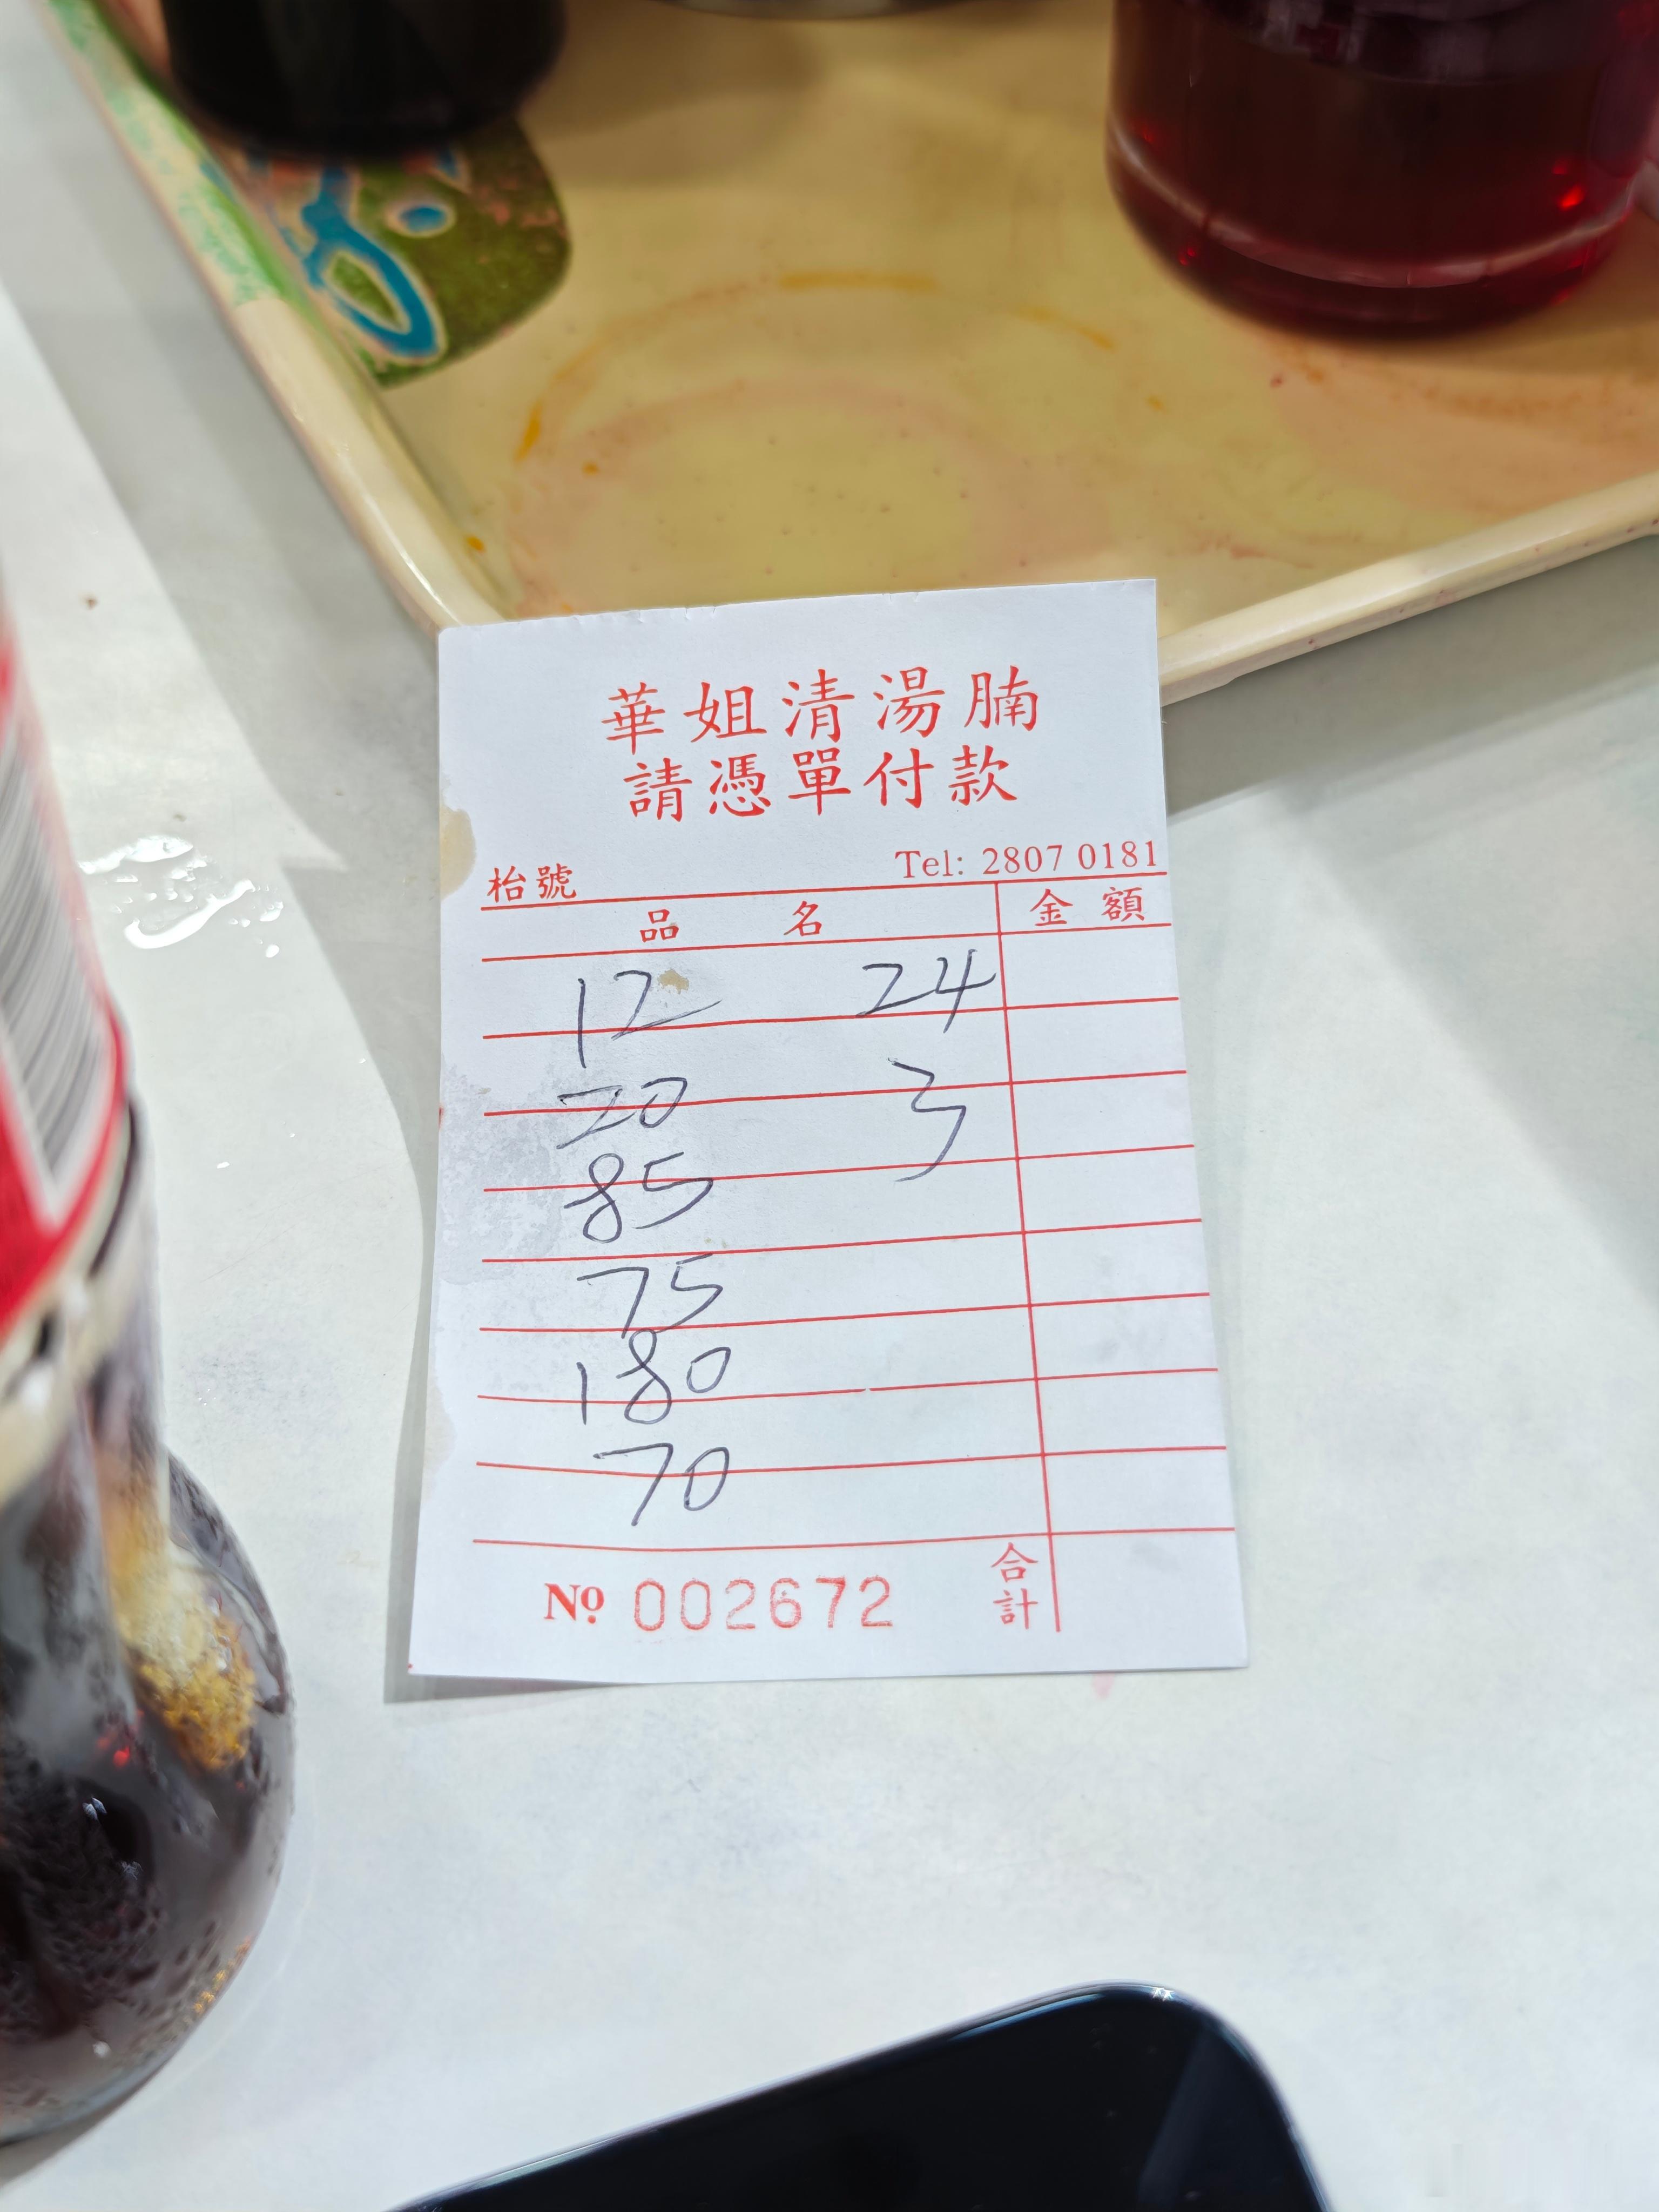 華姐清湯腩
請憑單付款
枱號 Tel: 2807 0181
品名 金額
12 24
20 3
85
75
180
70
合計
№ 002672